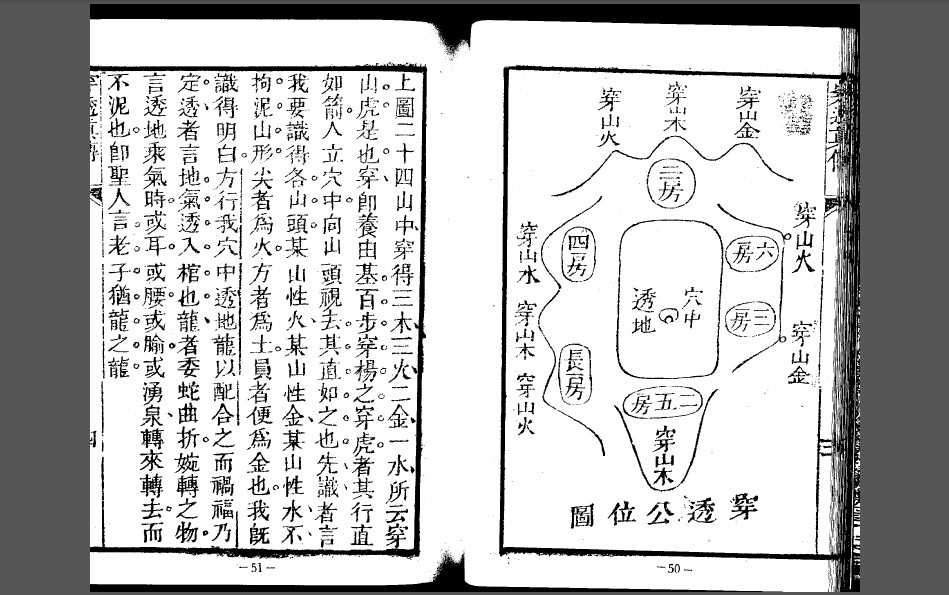 穿山金
穿山木
穿山火
三房
穿山火
六房
穿山金
三房
穴中
透地
四房
穿山水
穿山木
長房
穿山火
二五房
穿山木
穿透公位圖
三
－50－
上圖二十四山中穿得三木三火二金一水所云穿
山虎是也穿卽養由基百步穿楊之穿虎者其行直
如箭人立穴中向山頭視去其直如之也先識者言
我要識得各山頭某山性火某山性金某山性水不
拘泥山形尖者爲火方者爲土員者便爲金也我旣
識得明白方行我穴中透地龍以配合之而禍福乃
定透者言地氣透入棺也龍者委蛇曲折婉轉之物
言透地乘氣時或耳或腰或腧或湧泉轉來轉去而
不泥也卽聖人言老子猶龍之龍
四
－51－